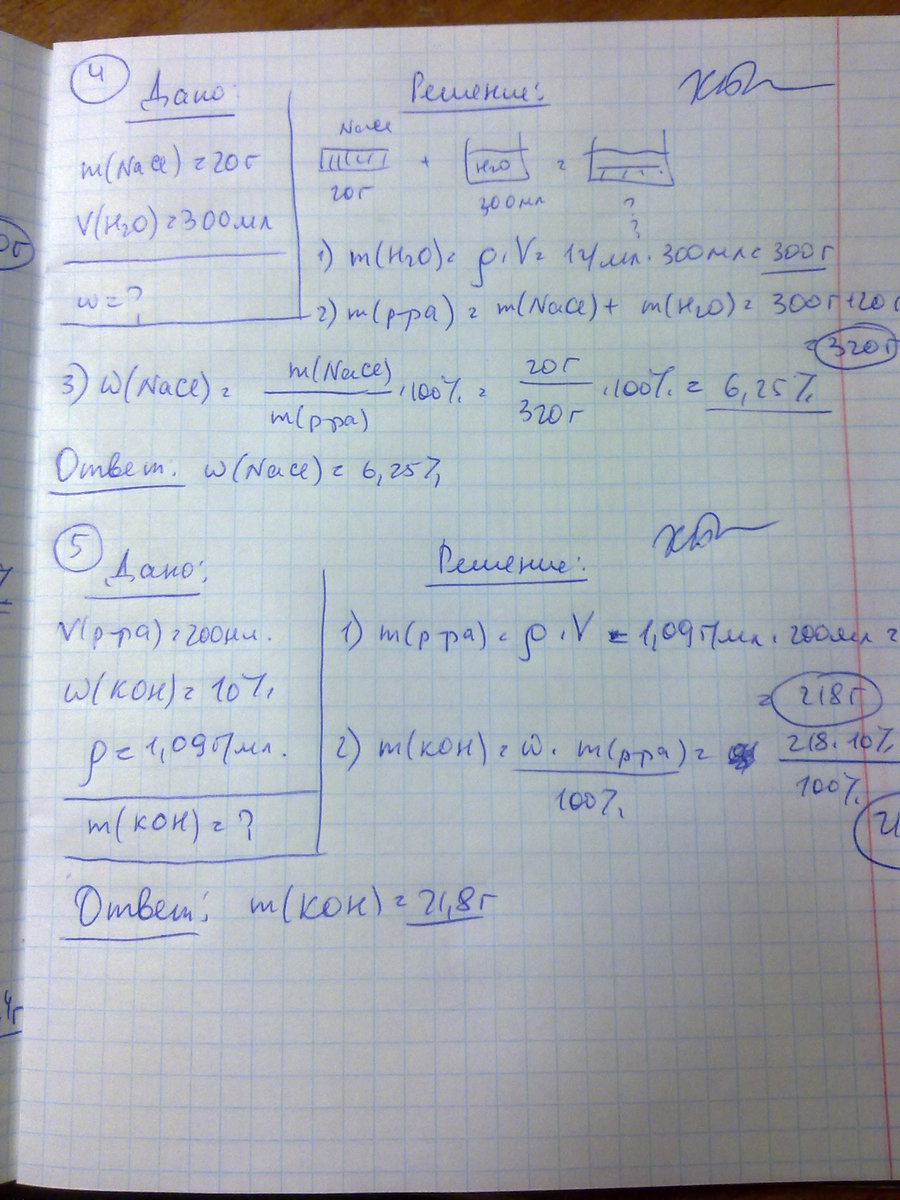 4
Дано: Решение:
m(NaCl) = 20г
V(H2O) = 300мл
w = ?
NaCl
+ H2O =
20г 300мл ?
1) m(H2O) = ρ · V = 1г/мл · 300мл = 300г
2) m(р-ра) = m(NaCl) + m(H2O) = 300г+20г
= 320г
3) w(NaCl) = m(NaCl) / m(р-ра) · 100% = 20г / 320г · 100% = 6,25%
Ответ: w(NaCl) = 6,25%
5
Дано: Решение:
V(р-ра) = 200мл.
w(KOH) = 10%
ρ = 1,09г/мл.
m(KOH) = ?
1) m(р-ра) = ρ · V = 1,09г/мл · 200мл =
= 218г
2) m(KOH) = w · m(р-ра) / 100% = 218 · 10% / 100%
Ответ: m(KOH) = 21,8г